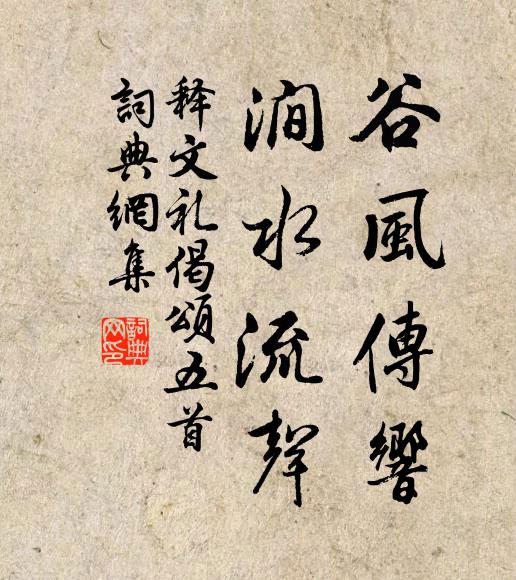 谷風傳響
澗水流聲
释文礼偈頌五首
詞典網集
詞典
网印